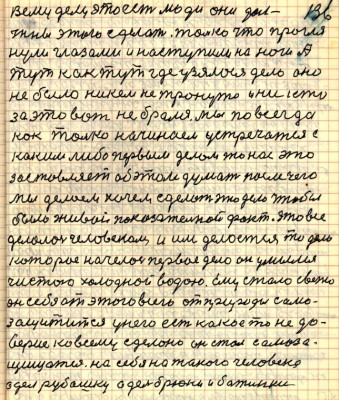 всему делу это есть люди они дол- 136
тны этого сделат. толко что прогля
нули глазами и наступили на ноги А
тут как тут где узялося дело оно
не было никем не тронуто и никто
за это вот не брался, мы по всегда
как толко начинаем устречатся с
каким либо первым делом то нас это
заставляет об этом думат после чего
мы делаем хочем сделат это дело чтобы
было живой показателной факт. Это все
делалос человеком, и им делается то дело
которое началос первое дело он умылся
чистою холодной водою. Ему стало свежо
он себя от этого всего от природы само-
защитится у него ест какое то не до-
верие ко всему сделано он стал самоза-
щищатся. на себя на такого человека
здел рубашку здел брюки и батинки